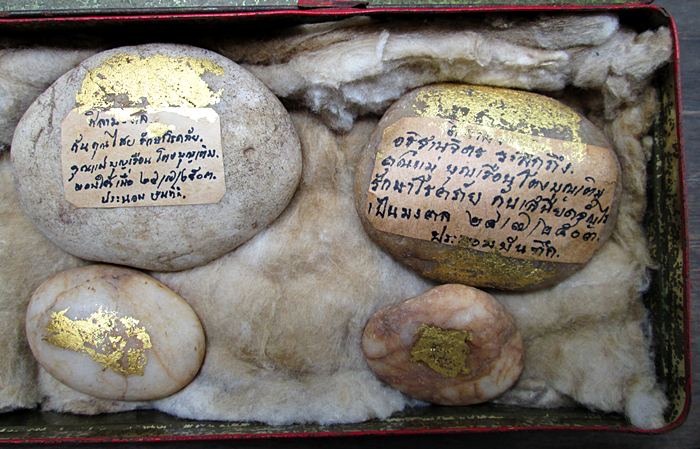 ศิลามงคล
กันคุณไสย รักษาโรคภัย.
คุณแม่ บุญเรือน โตงบุญเติม.
ประนอม
อธิษฐานจิตร ระลึกถึง.
คุณแม่ บุญเรือน โตงบุญเติม
รักษาโรคภัย กันเสนียดจัญไร
เป็นมงคล ๒๘/๗/๒๕๐๓.
ประนอมบันทึก.